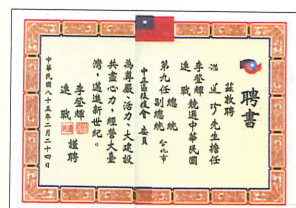 聘書
茲敦聘
先生擔任
李登輝
連　戰 競選中華民國
第九任 總統 副總統 台北市
中正區後援會 委員
為尊嚴、活力、大建設
共盡心力，經營大臺
灣，邁進新世紀。
李登輝
連　戰 謹聘
中華民國八十五年二月二十四日